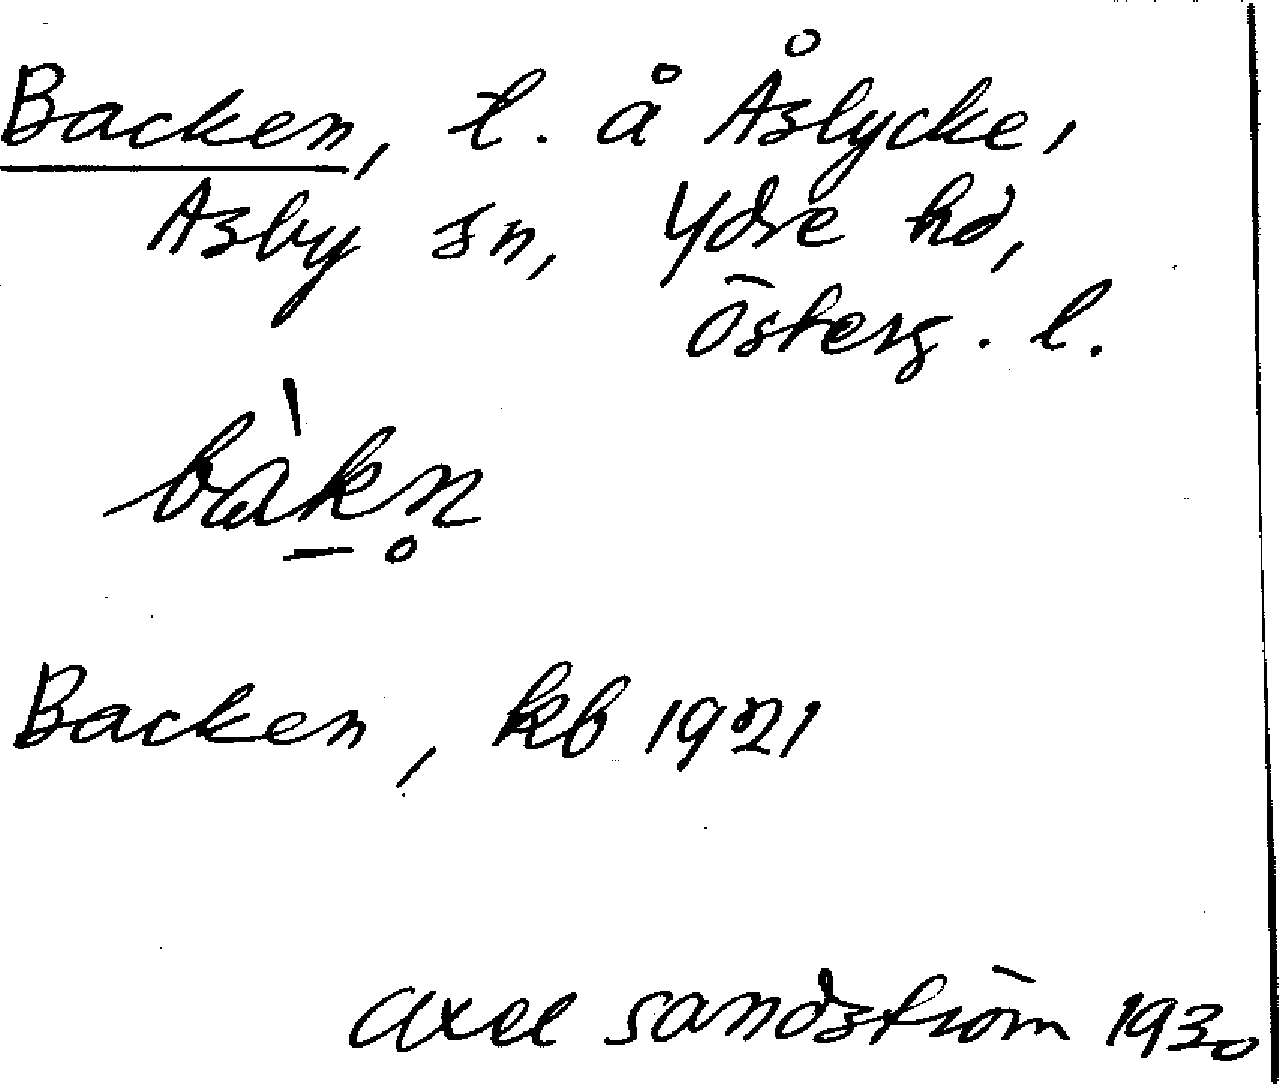 Backen, t. å Åslycke,
Asby sn, Ydre hd,
Österg. l.
bàkn̥
Backen, kb 1921
Axel Sandström 1930